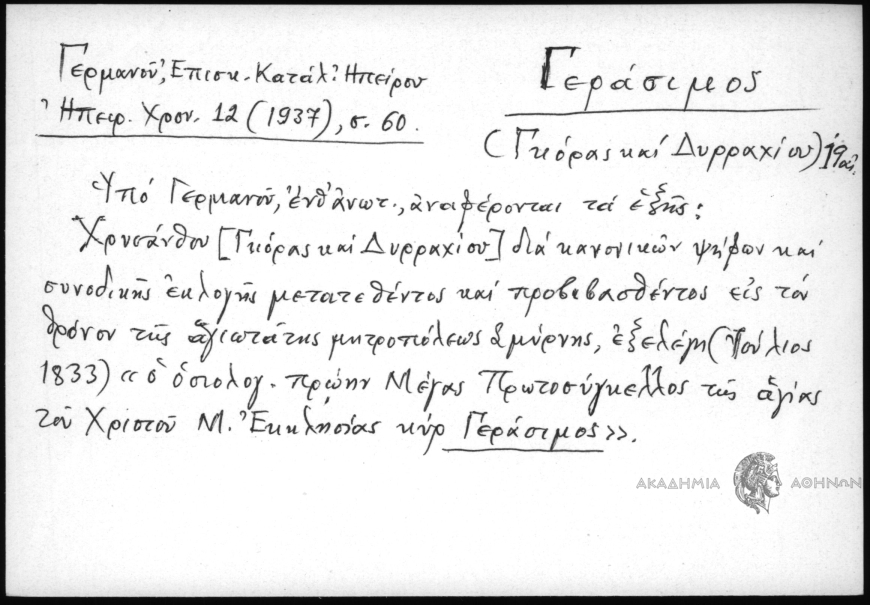 Γερμανοῦ, Ἐπισκ. Κατάλ. Ἠπείρου
Ἠπειρ. Χρον. 12 (1937), σ. 60.
Γεράσιμος
(Γκόρας καί Δυρραχίου) 19 αἰ.
Ὑπό Γερμανοῦ, ἔνθ' ἀνωτ., ἀναφέρονται τά ἑξῆς:
Χρυσάνθου [Γκόρας καί Δυρραχίου] διά κανονικῶν ψήφων καί
συνοδικῆς ἐκλογῆς μετατεθέντος καί προβιβασθέντος εἰς τόν
θρόνον τῆς ἁγιωτάτης μητροπόλεως Σμύρνης, ἐξελέγη (Ἰούλιος
1833) «ὁ ὁσιολογ. πρώην Μέγας Πρωτοσύγκελλος τῆς ἁγίας
τοῦ Χριστοῦ Μ. Ἐκκλησίας κύρ Γεράσιμος».
ΑΚΑΔΗΜΙΑ ΑΘΗΝΩΝ